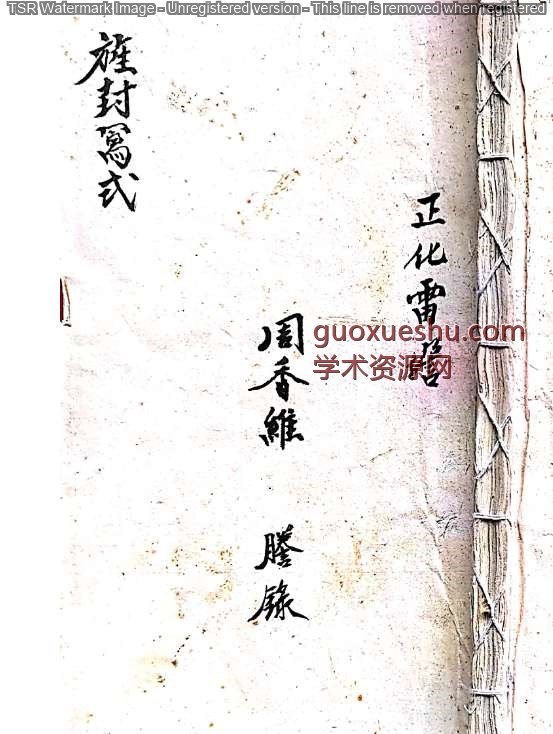 TSR Watermark Image - Unregistered version - This line is removed when registered
正化雷
guoxueshu.com
学术资源网
周香維 謄錄
旌封寫式